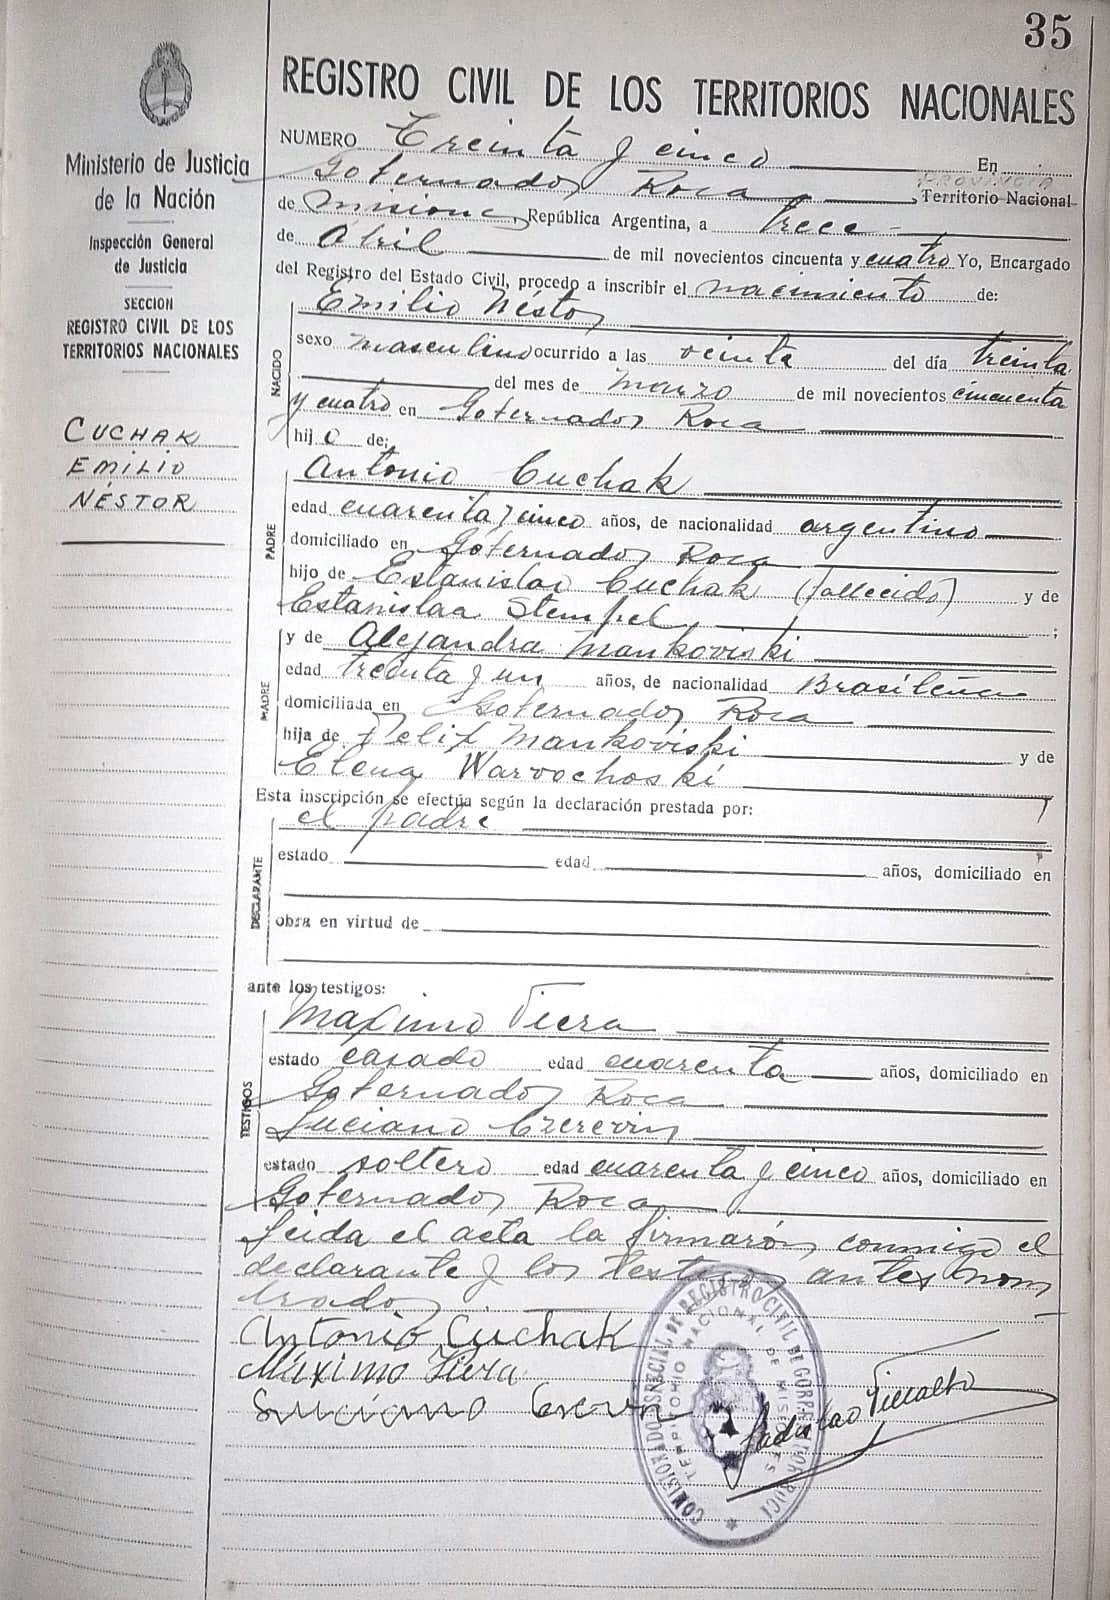 35
REGISTRO CIVIL DE LOS TERRITORIOS NACIONALES
Ministerio de Justicia
de la Nación
Inspección General
de Justicia
SECCION
REGISTRO CIVIL DE LOS
TERRITORIOS NACIONALES
CUCHAK
EMILIO
NÉSTOR
NUMERO Treinta y cinco En
Gobernador Roca PROVINCIA Territorio Nacional
de Misiones, República Argentina, a trece
de Abril de mil novecientos cincuenta y cuatro Yo, Encargado
del Registro del Estado Civil, procedo a inscribir el nacimiento de:
NACIDO
Emilio Néstor
sexo masculino ocurrido a las veinte del día treinta
del mes de marzo de mil novecientos cincuenta
y cuatro en Gobernador Roca
hij o de:
PADRE
Antonio Cuchak
edad cuarenta y cinco años, de nacionalidad argentino
domiciliado en Gobernador Roca
hijo de Estanislao Cuchak (fallecido) y de
Estanislaa Stempel ;
MADRE
y de Alejandra Mankoviski
edad treinta y un años, de nacionalidad Brasileña
domiciliada en Gobernador Roca
hija de Felix Mankoviski y de
Elena Warvochoski
Esta inscripción se efectúa según la declaración prestada por:
DECLARANTE
el padre
estado edad años, domiciliado en
obra en virtud de
ante los testigos:
TESTIGOS
Maximo Viera
estado casado edad cuarenta años, domiciliado en
Gobernador Roca
Luciano
estado soltero edad cuarenta y cinco años, domiciliado en
Gobernador Roca
Leida el acta la firmarón conmigo el
declarante y los testigos antes nom
brados
Antonio Cuchak
Maximo Viera
Luciano
Ladislao
REGISTRO CIVIL DE
TERRITORIO NACIONAL DE MISIONES